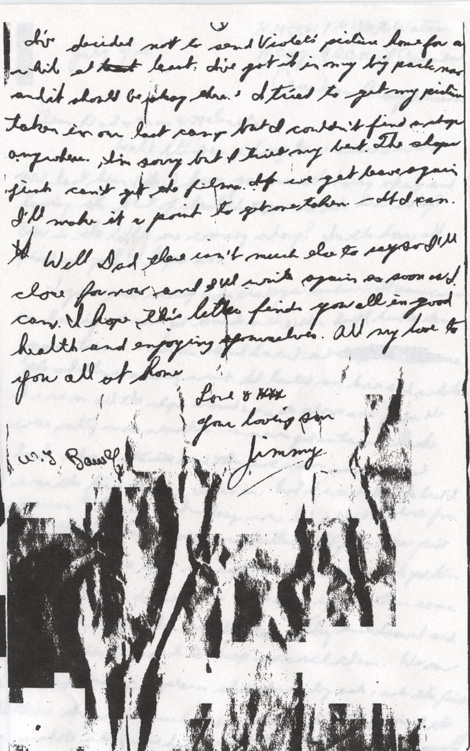 3
I've decided not to send Violet's picture home for a
while at least. I've got it in my big pack now
and it should be okay there. I tried to get my picture
taken in our last camp but I couldn't find a shop
anywhere. I'm sorry but I tried my best. The shops
just can't get the films. If we get leave again
I'll make it a point to get one taken – if I can.
Well Dad there isn't much else to say so I'll
close for now and I'll write again as soon as I
can. I hope this letter finds you all in good
health and enjoying yourselves. All my love to
you all at home
Love & xxx
Your loving son
Jimmy